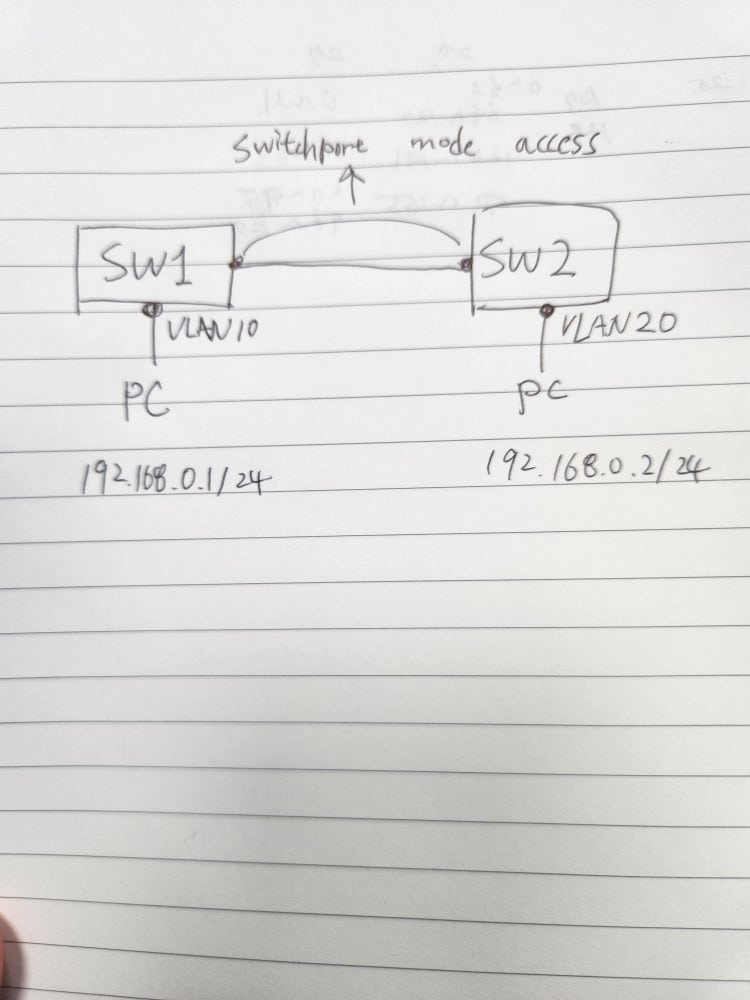 Switchport mode access
SW1
SW2
VLAN10
VLAN20
PC
PC
192.168.0.1/24
192.168.0.2/24